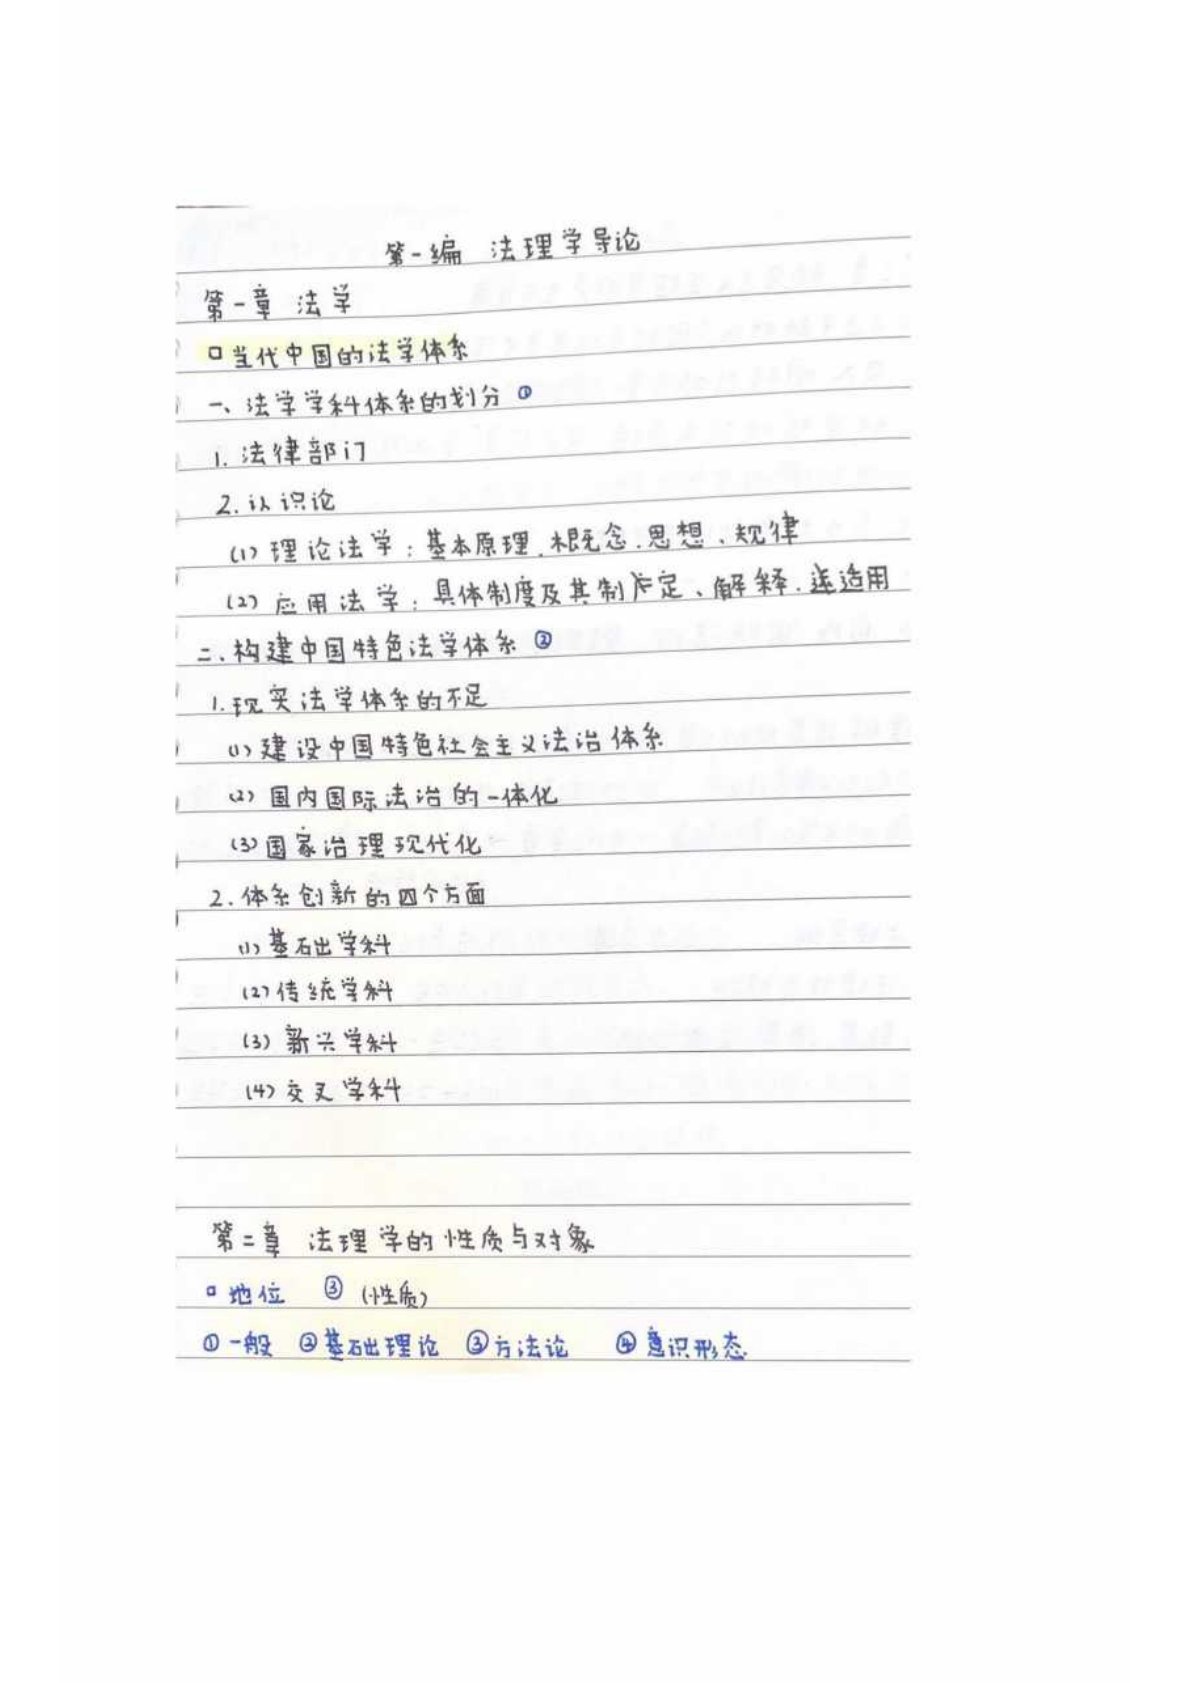 第一编 法理学导论
第一章 法学
口当代中国的法学体系
一、法学学科体系的划分 ①
1. 法律部门
2. 认识论
(1) 理论法学：基本原理、概念、思想、规律
(2) 应用法学：具体制度及其制定、解释、适用
二、构建中国特色法学体系 ②
1. 现实法学体系的不足
(1) 建设中国特色社会主义法治体系
(2) 国内国际法治的一体化
(3) 国家治理现代化
2. 体系创新的四个方面
(1) 基础学科
(2) 传统学科
(3) 新兴学科
(4) 交叉学科
第二章 法理学的性质与对象
口地位 ③ (性质)
①一般 ②基础理论 ③方法论 ④意识形态